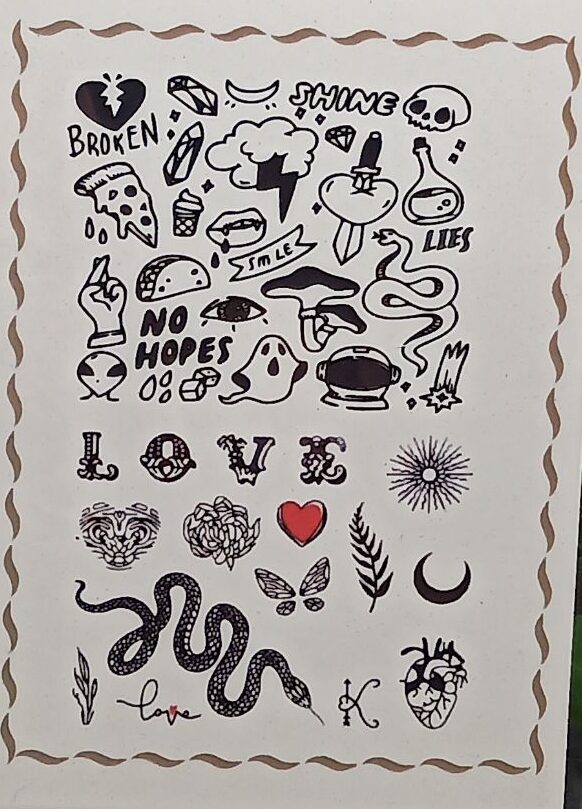 SHINE
BROKEN
LIES
SMLE
NO
HOPES
LOVE
love
K